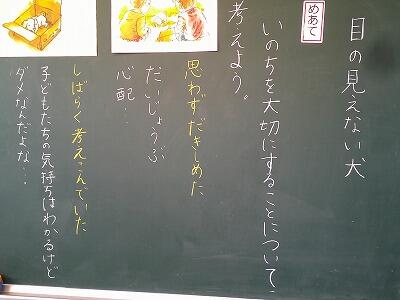 目の見えない犬
めあて
いのちを大切にすることについて
考えよう。
思わずだきしめた
だいじょうぶ
心配…
しばらく考えこんでいた
子どもたちの気持ちはわかるけど
ダメなんだよな…